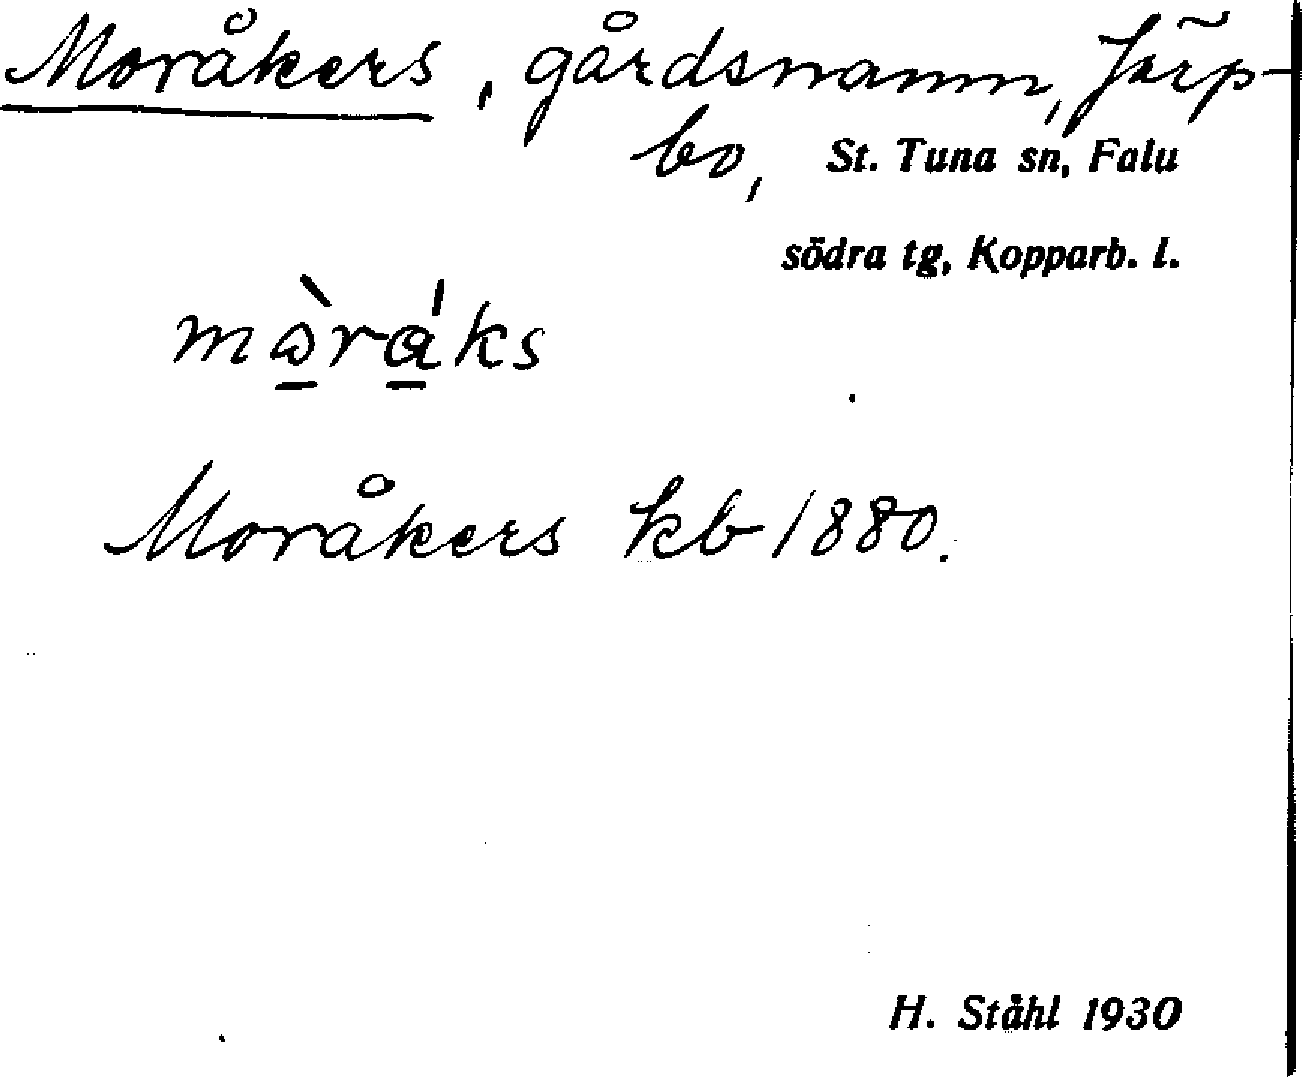 Moråkers, gårdsnamn, Järp-
bo, St. Tuna sn, Falu
södra tg, Kopparb. l.
Moråkers kb 1880.
H. Ståhl 1930